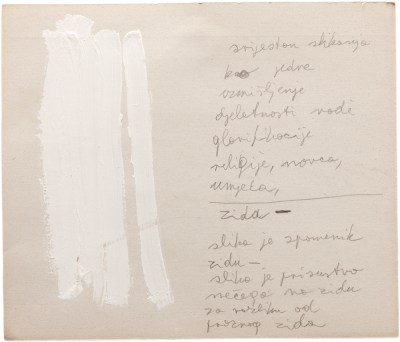 svijeston slikanja
kao jedne
uzvišenije
djelatnosti vodi
glorifikacije
religije, novca,
umjeća,
zida –
slika je spomenik
zidu –
slika je prisustvo
nečega na zidu
za razliku od
praznog zida